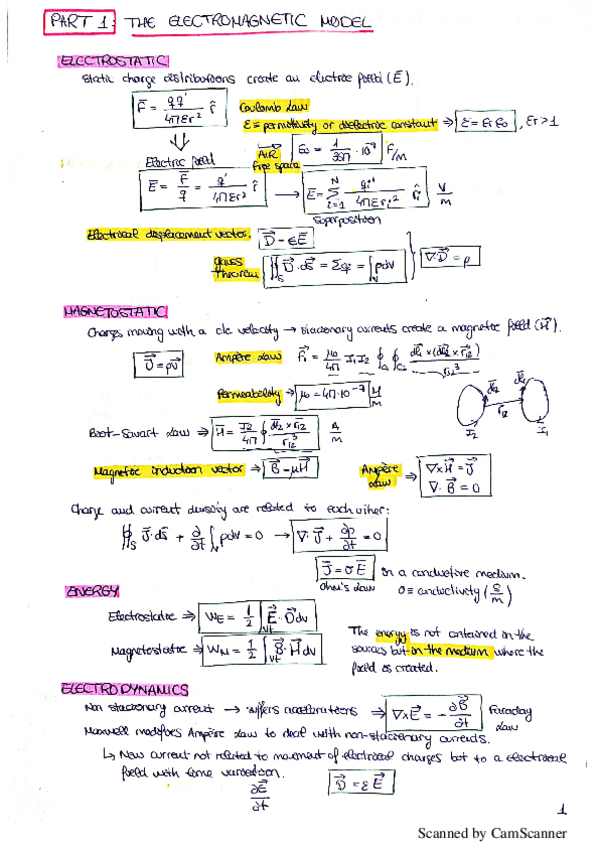 PART 1: THE ELECTROMAGNETIC MODEL
ELECTROSTATIC
Static charge distributions create an electric field (E⃗).
F̄ = qq'/4πεr² r̂ Coulomb Law
ε ≡ permitivity or dielectric constant ⇒ ε = εr ε0, εr > 1
Electric field AIR free space ε0 = 1/36π · 10⁻⁹ F/m
Ē = F̄/q = q'/4πεr² r̂ → Ē = Σ_{i=1}^{N} qi'/4πεri² r̂i V/m
Superposition
Electrical displacement vector. D⃗ = εE⃗
Gauss Theorem ∯_S D⃗·ds⃗ = Σqi = ∫_V ρdv } ∇·D⃗ = ρ
MAGNETOSTATIC
Charges moving with a cte velocity → stacionary currents create a magnetic field (H⃗).
J⃗ = ρv⃗ Ampère Law F⃗1 = μ0/4π I1 I2 ∮ ∮ dl⃗1 × (dl⃗2 × r⃗12) / r12³
Permeability → μ0 = 4π·10⁻⁷ H/m
dl2 dl1 r12 I2 I1
Biot-Savart Law ⇒ H⃗ = I2/4π ∮ dl⃗2 × r⃗12 / r12³ A/m
Magnetic induction vector → B⃗ = μH⃗ Ampère Law ⇒ ∇×H⃗ = J⃗
∇·B⃗ = 0
Charge and current density are related to each other:
∯_S J⃗·ds⃗ + ∂/∂t ∫_V ρdv = 0 → ∇·J⃗ + ∂ρ/∂t = 0
J⃗ = σE⃗ in a conductive medium.
Ohm's Law σ ≡ conductivity (S/m)
ENERGY
Electrostatic ⇒ WE = 1/2 ∫_Vt E⃗·D⃗dv
Magnetostatic ⇒ WM = 1/2 ∫_Vt B⃗·H⃗dv
The energy is not contained in the
sources but in the medium where the
field is created.
ELECTRODYNAMICS
Non stacionary current → suffers accelerations ⇒ ∇×E⃗ = −∂B⃗/∂t Faraday Law
Maxwell modifies Ampère Law to deal with non-stacionary currents.
↳ New current not related to movement of electrical charges but to a electrical
field with time variation.
∂E⃗/∂t D⃗ = εE⃗
1
Scanned by CamScanner